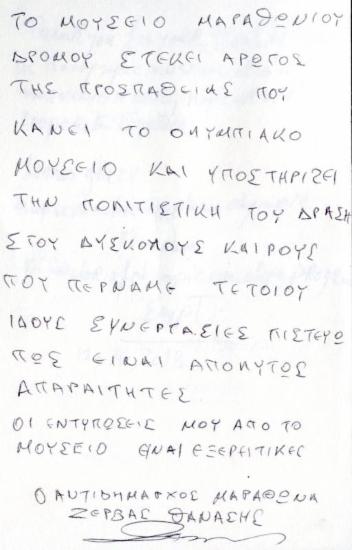 ΤΟ ΜΟΥΣΕΙΟ ΜΑΡΑΘΩΝΙΟΥ
ΔΡΟΜΟΥ ΣΤΕΚΕΙ ΑΡΩΓΟΣ
ΤΗΣ ΠΡΟΣΠΑΘΕΙΑΣ ΠΟΥ
ΚΑΝΕΙ ΤΟ ΟΛΥΜΠΙΑΚΟ
ΜΟΥΣΕΙΟ ΚΑΙ ΥΠΟΣΤΗΡΙΖΕΙ
ΤΗΝ ΠΟΛΙΤΙΣΤΙΚΗ ΤΟΥ ΔΡΑΣΗ
ΣΤΟΥ ΔΥΣΚΟΛΟΥΣ ΚΑΙΡΟΥΣ
ΠΟΥ ΠΕΡΝΑΜΕ ΤΕΤΟΙΟΥ
ΙΔΟΥΣ ΣΥΝΕΡΓΑΣΙΕΣ ΠΙΣΤΕΥΩ
ΠΩΣ ΕΙΝΑΙ ΑΠΟΛΥΤΩΣ
ΑΠΑΡΑΙΤΗΤΕΣ
ΟΙ ΕΝΤΥΠΩΣΕΙΣ ΜΟΥ ΑΠΟ ΤΟ
ΜΟΥΣΕΙΟ ΕΙΝΑΙ ΕΞΕΡΕΙΤΙΚΕΣ
Ο ΑΝΤΙΔΗΜΑΡΧΟΣ ΜΑΡΑΘΩΝΑ
ΖΕΡΒΑΣ ΘΑΝΑΣΗΣ